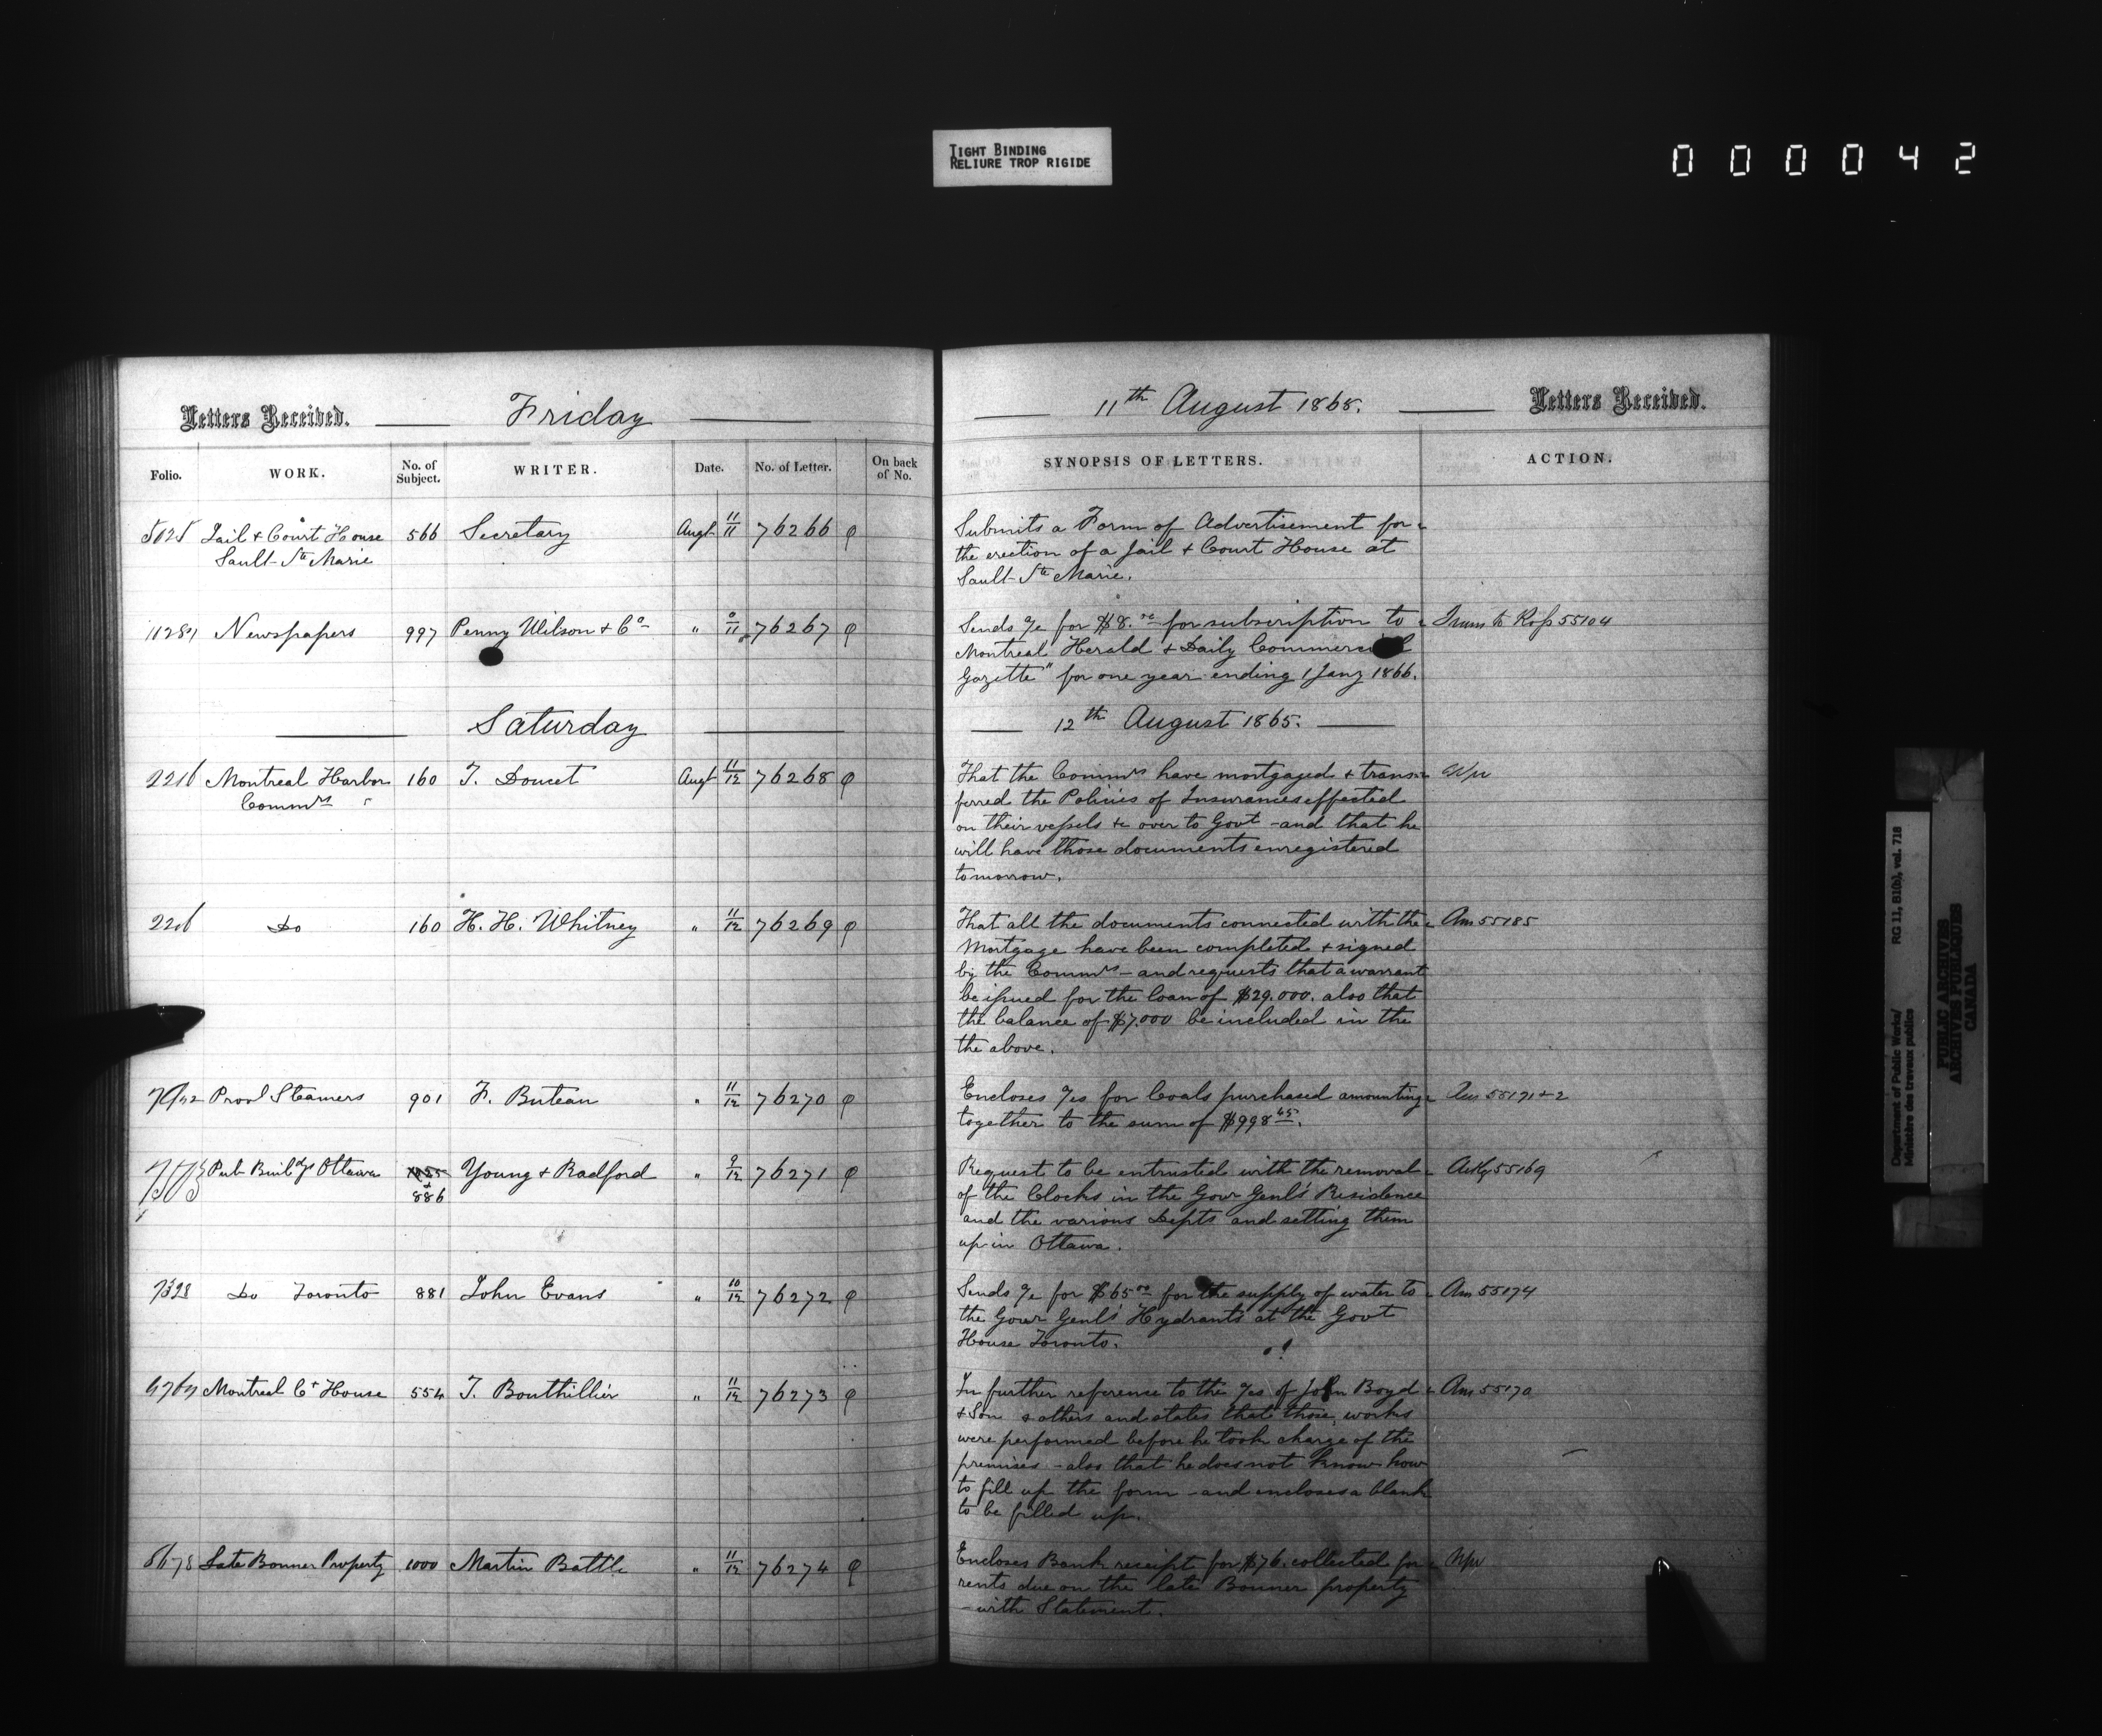 TIGHT BINDING
RELIURE TROP RIGIDE
000042
Letters Received. Friday
Folio. WORK. No. of Subject. WRITER. Date. No. of Letter. On back of No.
Jail & Court House 566 Secretary Augt 11/11 76266
Sault Ste Marie
Newspapers 997 Penny Wilson & Co " 9/11 76267
Saturday
2216 Montreal Harbor 160 T. Doucet Augt 11/12 76268
Commrs
Do 160 H. H. Whitney " 11/12 76269
Provl Steamers 901 F. Buteau " 11/12 76270
Pub Buildgs Ottawa Young & Radford " 9/12 76271
886
7328 Do Toronto 881 John Evans " 10/12 76272
Montreal Ct House 554 T. Bouthillier " 11/12 76273
Late Bonner Property 1000 Martin Battle " 11/12 76274
11th August 1865. Letters Received.
SYNOPSIS OF LETTERS. ACTION.
Submits a Form of Advertisement for
the erection of a Jail & Court House at
Sault Ste Marie.
Sends a/c for $8.00 for subscription to 55104
Montreal Herald & Daily Commercial
Gazette" for one year ending 1 Jany 1866.
12th August 1865.
That the Commrs have mortgaged & trans-
ferred the Policies of Insurances effected
on their vessels &c over to Govt - and that he
will have those documents enregistered
tomorrow.
That all the documents connected with the Ans 55185
Mortgage have been completed & signed
by the Commrs - and requests that a warrant
be issued for the loan of $29.000. also that
the balance of $7.000 be included in the
the above.
Encloses a/cs for Coals purchased amounting Ans 55171 & 2
together to the sum of $998 65.
Request to be entrusted with the removal 55169
of the Clocks in the Govr Genl's Residence
and the various Depts and setting them
up in Ottawa.
Sends a/c for $65 00 for the supply of water to Ans 55174
the Govr Genl's Hydrants at the Govt
House Toronto.
In further reference to the a/cs of John Boyd Ans 55170
& Son & others and states that those works
were performed before he took charge of the
premises - also that he does not know how
to fill up the form - and encloses a blank
to be filled up.
Encloses Bank receipt for $76. collected for
rents due on the late Bonner property
- with Statement.
Department of Public Works/ RG 11, B1(b), vol. 718
Ministère des travaux publics
PUBLIC ARCHIVES
ARCHIVES PUBLIQUES
CANADA